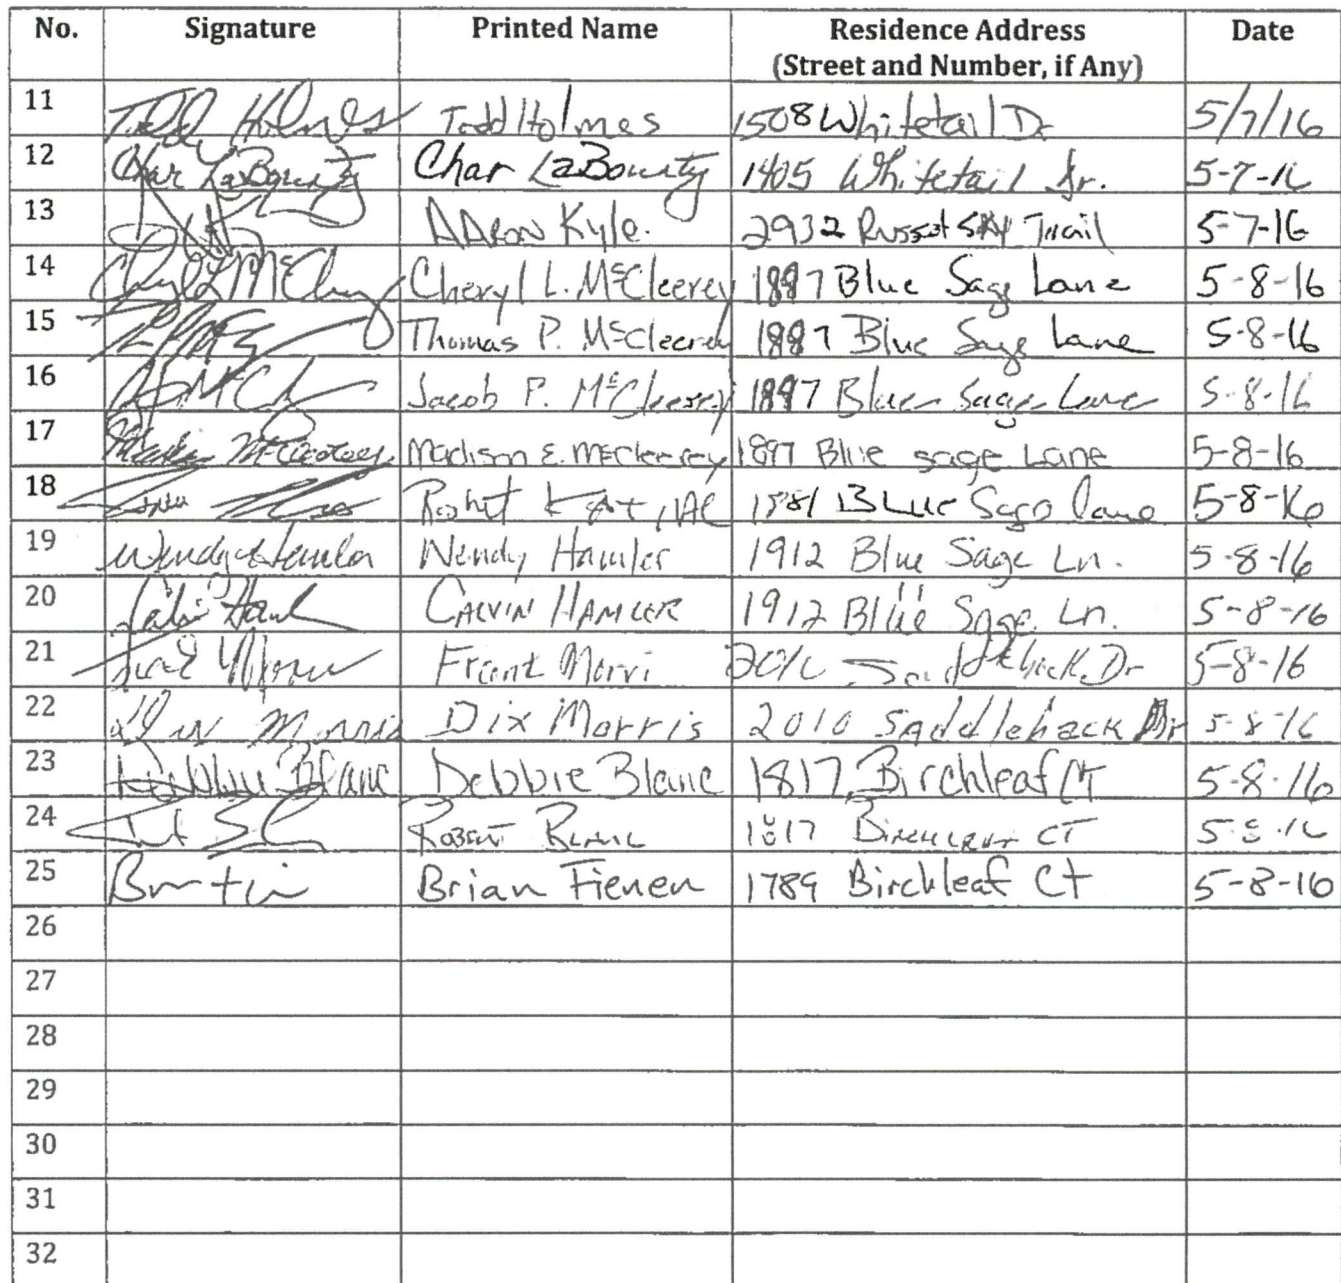 No. Signature Printed Name Residence Address Date
(Street and Number, if Any)
11 Todd Holmes Todd Holmes 1508 Whitetail Dr 5/7/16
12 Char LaBounty Char LaBounty 1405 Whitetail Dr. 5-7-16
13 AAron Kyle. 2932 Russet Sky Trail 5-7-16
14 Cheryl L. McCleerey 1887 Blue Sage Lane 5-8-16
15 Thomas P. McCleerey 1887 Blue Sage Lane 5-8-16
16 Jacob P. McCleerey 1897 Blue Sage Lane 5-8-16
17 Madison E. McCleerey 1897 Blue sage Lane 5-8-16
18 Blue Sage lane 5-8-16
19 Wendy Hamler Wendy Hamler 1912 Blue Sage Ln. 5-8-16
20 CALVIN HAMLER 1912 Blue Sage Ln. 5-8-16
21 Dr 5-8-16
22 Dix Morris Dix Morris 2010 Saddleback Dr 5-8-16
23 Debbie Blanc Debbie Blanc 1817 Birchleaf CT 5-8-16
24 Robert 1817 CT
25 Brian Fienen 1789 Birchleaf Ct 5-8-16
26
27
28
29
30
31
32